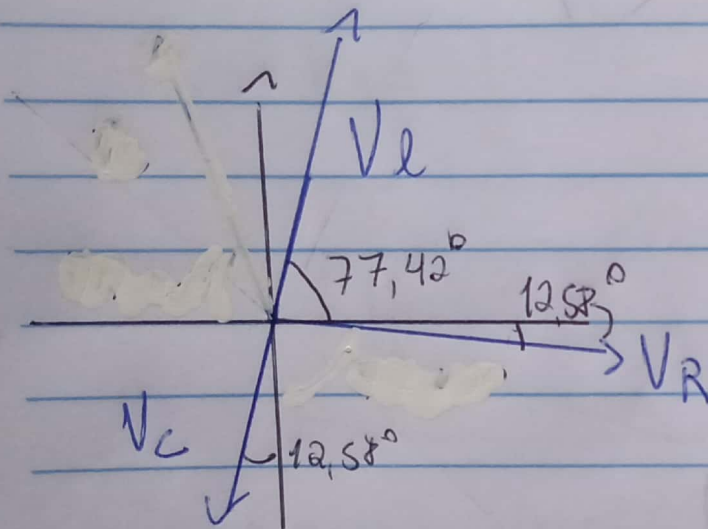 Vl
77,42°
12,58°
VR
Vc
12,58°